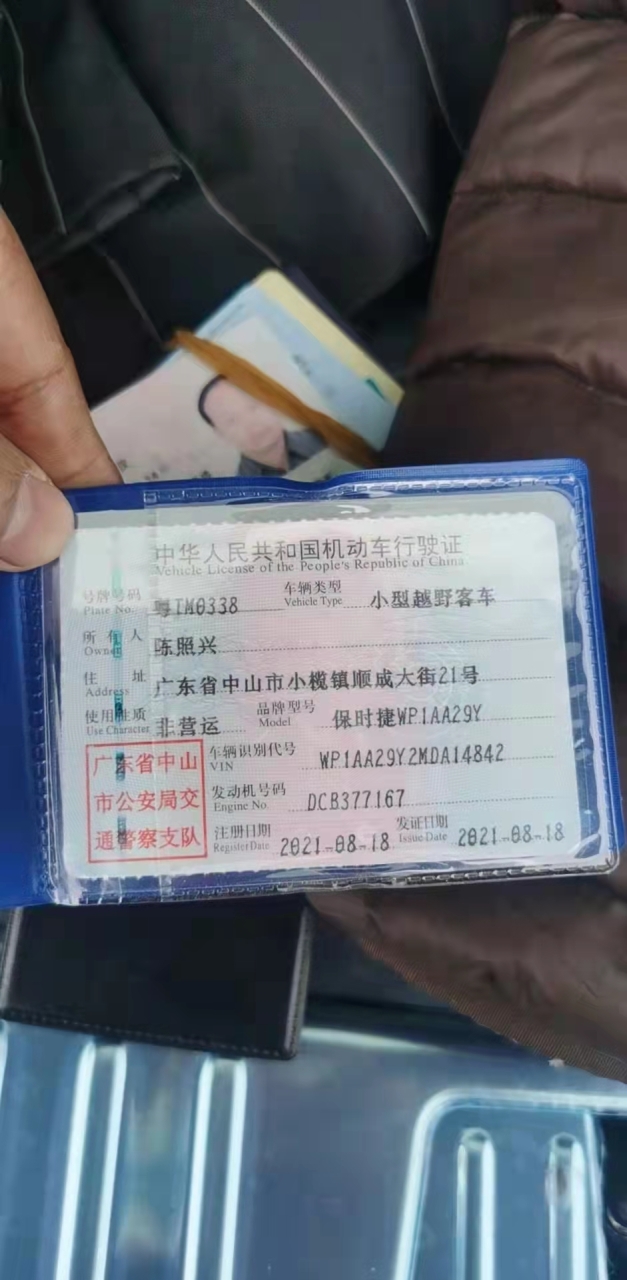 中华人民共和国机动车行驶证
Vehicle License of the People's Republic of China
号牌号码 Plate No. 粤TM0338 车辆类型 Vehicle Type 小型越野客车
所有人 Owner 陈照兴
住址 Address 广东省中山市小榄镇顺成大街21号
使用性质 Use Character 非营运 品牌型号 Model 保时捷WP1AA29Y
广东省中山市公安局交通警察支队
车辆识别代号 VIN WP1AA29Y2MDA14842
发动机号码 Engine No. DCB377167
注册日期 Register Date 2021-08-18 发证日期 Issue Date 2021-08-18